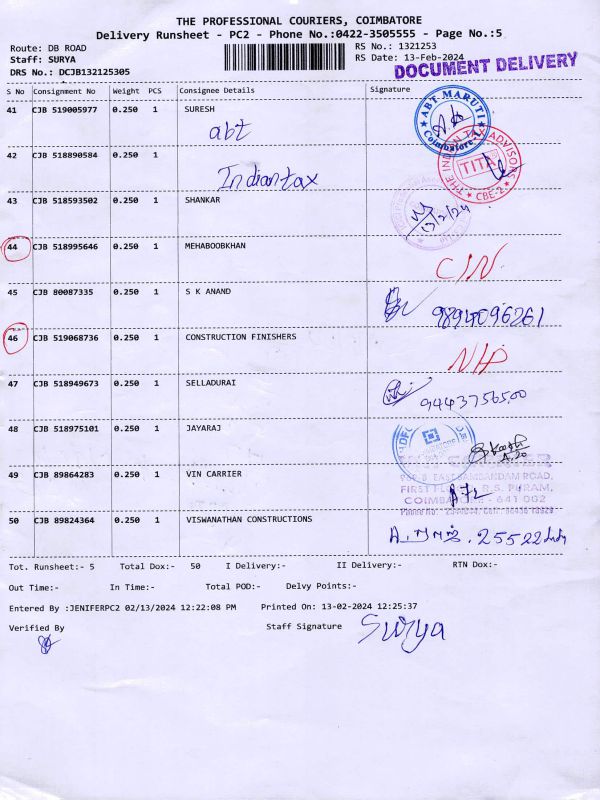 THE PROFESSIONAL COURIERS, COIMBATORE
Delivery Runsheet - PC2 - Phone No.:0422-3505555 - Page No.:5
Route: DB ROAD
RS No.: 1321253
Staff: SURYA
RS Date: 13-Feb-2024
DRS No.: DCJB132125305
DOCUMENT DELIVERY
S No Consignment No Weight PCS Consignee Details Signature
41 CJB 519005977 0.250 1 SURESH
abt
ABT MARUTI
Coimbatore
42 CJB 518890584 0.250 1
Indiantax
THE INDIAN TAX ADVISORS
TITA
CBE-2
43 CJB 518593502 0.250 1 SHANKAR
13/2/24
44 CJB 518995646 0.250 1 MEHABOOBKHAN
45 CJB 80087335 0.250 1 S K ANAND
9894096261
46 CJB 519068736 0.250 1 CONSTRUCTION FINISHERS
47 CJB 518949673 0.250 1 SELLADURAI
9443756500
48 CJB 518975101 0.250 1 JAYARAJ
49 CJB 89864283 0.250 1 VIN CARRIER
EAST SAMBANDAM ROAD,
FIRST FLOOR, R.S. PURAM,
COIMBATORE - 641 002
50 CJB 89824364 0.250 1 VISWANATHAN CONSTRUCTIONS
Tot. Runsheet:- 5 Total Dox:- 50 I Delivery:- II Delivery:- RTN Dox:-
Out Time:- In Time:- Total POD:- Delvy Points:-
Entered By :JENIFERPC2 02/13/2024 12:22:08 PM Printed On: 13-02-2024 12:25:37
Verified By Staff Signature Surya